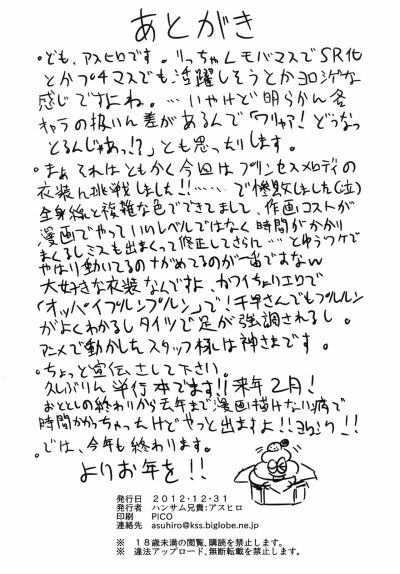 あとがき
・ども、アスヒロです。りっちゃんモバマスでSR化
とかプチマスでも活躍しそうとかヨロシゲな
感じですよね。…いやけど明らかん各
キャラの扱いん差があるんで「ワリャア！どうなっ
とるんじゃあっ！？」とも思ったりします。
・まぁそれはともかく今回はプリンセスメロディの
衣装ん挑戦しました！！……で惨敗しました(泣)
全身線と複雑な色でできてまして、作画コストが
漫画でやっていいレベルではなく時間がかかり
まくるしミスも出まくって修正してさらん…とゆうワケで
やはり動いてるのナがめてるのが一番ですなw
大好きな衣装なんですよ、カワイイちょりエリで
「オッパイプルンプルン」で！千早さんでもプルルン
がよくわかるしタイツで足が強調されるし。
アニメで動かしたスタッフ様は神さまです。
・ちょっと宣伝さして下さい。
久しぶりん単行本でます！！来年2月！
おととしの終わりから去年まで漫画描けない病で
時間かかっちゃったけどやっと出ますよ！！ヨロシク！！
・では、今年も終わります。
よりお年を！！
発行日 2012・12・31
発行者 ハンサム兄貴:アスヒロ
印刷 PICO
連絡先 asuhiro@kss.biglobe.ne.jp
※ 18歳未満の閲覧、購読を禁止します。
※ 違法アップロード、無断転載を禁止します。